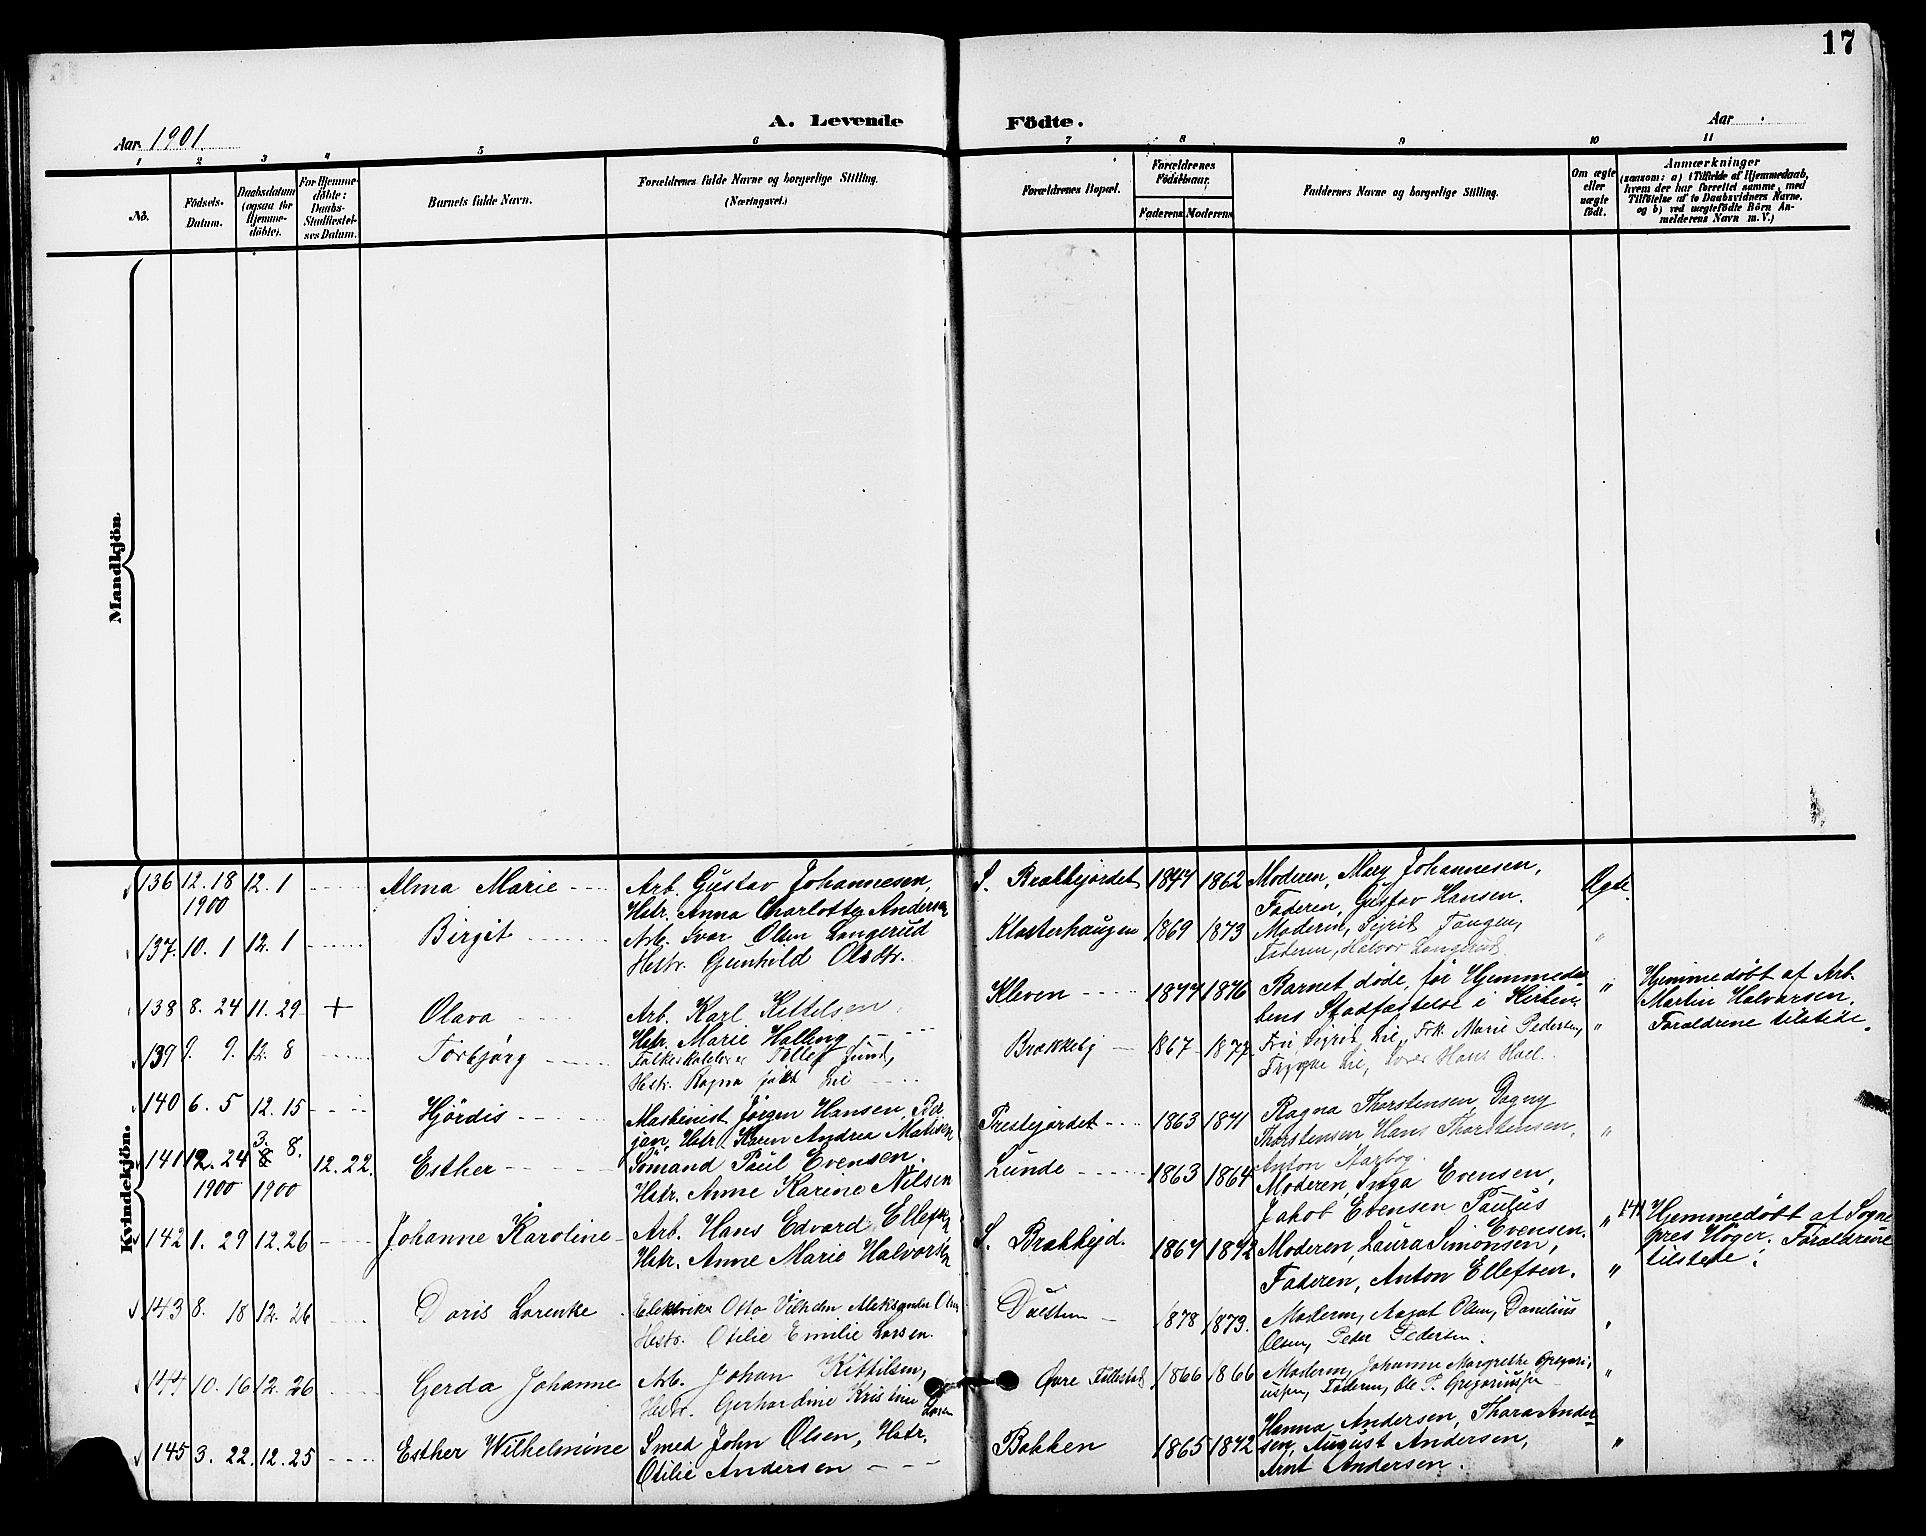 17
Aar 1901.
A. Levende Födte.
Aar
1 2 3 4 5 6 7 8 9 10 11
No.
Födsels-Datum.
Daabsdatum (ogsaa for Hjemme-döbte).
For Hjemme-döbte: Daabs-Stadfæstel-ses Datum.
Barnets fulde Navn.
Forældrenes fulde Navne og borgerlige Stilling. (Næringsvei.)
Forældrenes Bopæl.
Forældrenes Födselsaar.
Faderens Moderens
Faddernes Navne og borgerlige Stilling.
Om ægte eller uægte födt.
Anmærkninger
(saasom: a) i Tilfælde af Hjemmedaab,
hvem der har forrettet samme, med
Tilföielse af to Daabsvidners Navne,
og b) ved uægtefödte Börn An-
melderens Navn m. V.)
Mandkjön.
Kvindekjön.
136 12. 18 1900 12. 1 Alma Marie Arb. Gustav Johannesen, Hstr. Anna Charlotte Andersen S. Brækkejordet 1844 1862 Moderen, Mery Johannesen, Faderen, Gustav Hansen. Ægte
137. 10. 1 12. 1 Birgit Arb. Ivar Olsen Langerud Hstr. Gunhild Olsdtr. Klosterhaugen 1869 1873 Moderen, Sigrid Tangen, Faderen, Halvor Langerud "
138 8. 24 11. 29 + Olava Arb. Karl Kittelsen, Hstr. Marie Halling Kleven 1877 1876 Barnet døde, før Hjemmedaabens Stadfæstelse i Kirken. " Hjemmedøbt af Arb. Martin Halvorsen. Forældrene tilstede.
139 9. 9. 12. 8 Torbjørg Tollef Lund, Hstr. Ragna født Lie Brækkeby 1867 1877 Fru Sigrid Lie, Frk. Marie Pedersen, Trygve Lie, Hans Hoel. "
140 6. 5 12. 15 Hjördis Maskinist Jørgen Hansen, Hstr. Karen Andrea Madsen Prestejordet 1863 1871 Ragna Thorstensen, Dagny Thorstensen Hans Thorstensen, Anton "
141 12. 24 1900 3. 8. 1900 12. 22. Esther Sömand Paul Evensen. Hstr. Anne Karine Nilsen Lunde 1863 1864 Moderen, Inga Evensen, Jakob Evensen Paulus Evensen. " 141 Hjemmedøbt af Sognepres Høyer. Forældrene tilstede.
142 1. 29 12. 26 Johanne Karoline Arb. Hans Edvard Ellefsen Hstr. Anne Marie Halvorsen S. Brækkejd. 1867 1872 Moderen, Laura Simonsen, Faderen, Anton Ellefsen. "
143 8. 18 12. 26 Doris Lorentze Otto Vilhelm Aleksander Olsen Hstr. Otilie Emilie Larsen. 1878 1873. Moderen, Aagot Olsen, Danelius Olsen, Peder Pedersen. "
144 10. 16 12. 26 Gerda Johanne Arb. Johan Kittilsen, Hstr. Gerhardine Kristine Larsen Øvre Follestad 1866 1866 Moderen, Johanne Margrethe Gregoriussen, Faderen, Ole P. Gregoriussen "
145 3. 22. 12. 25 Esther Wilhelmine Smed John Olsen, Hstr. Otilie Andersen Bakken 1865 1872 Hanna Andersen, Thora Andersen, August Andersen, Arnt Andersen. "